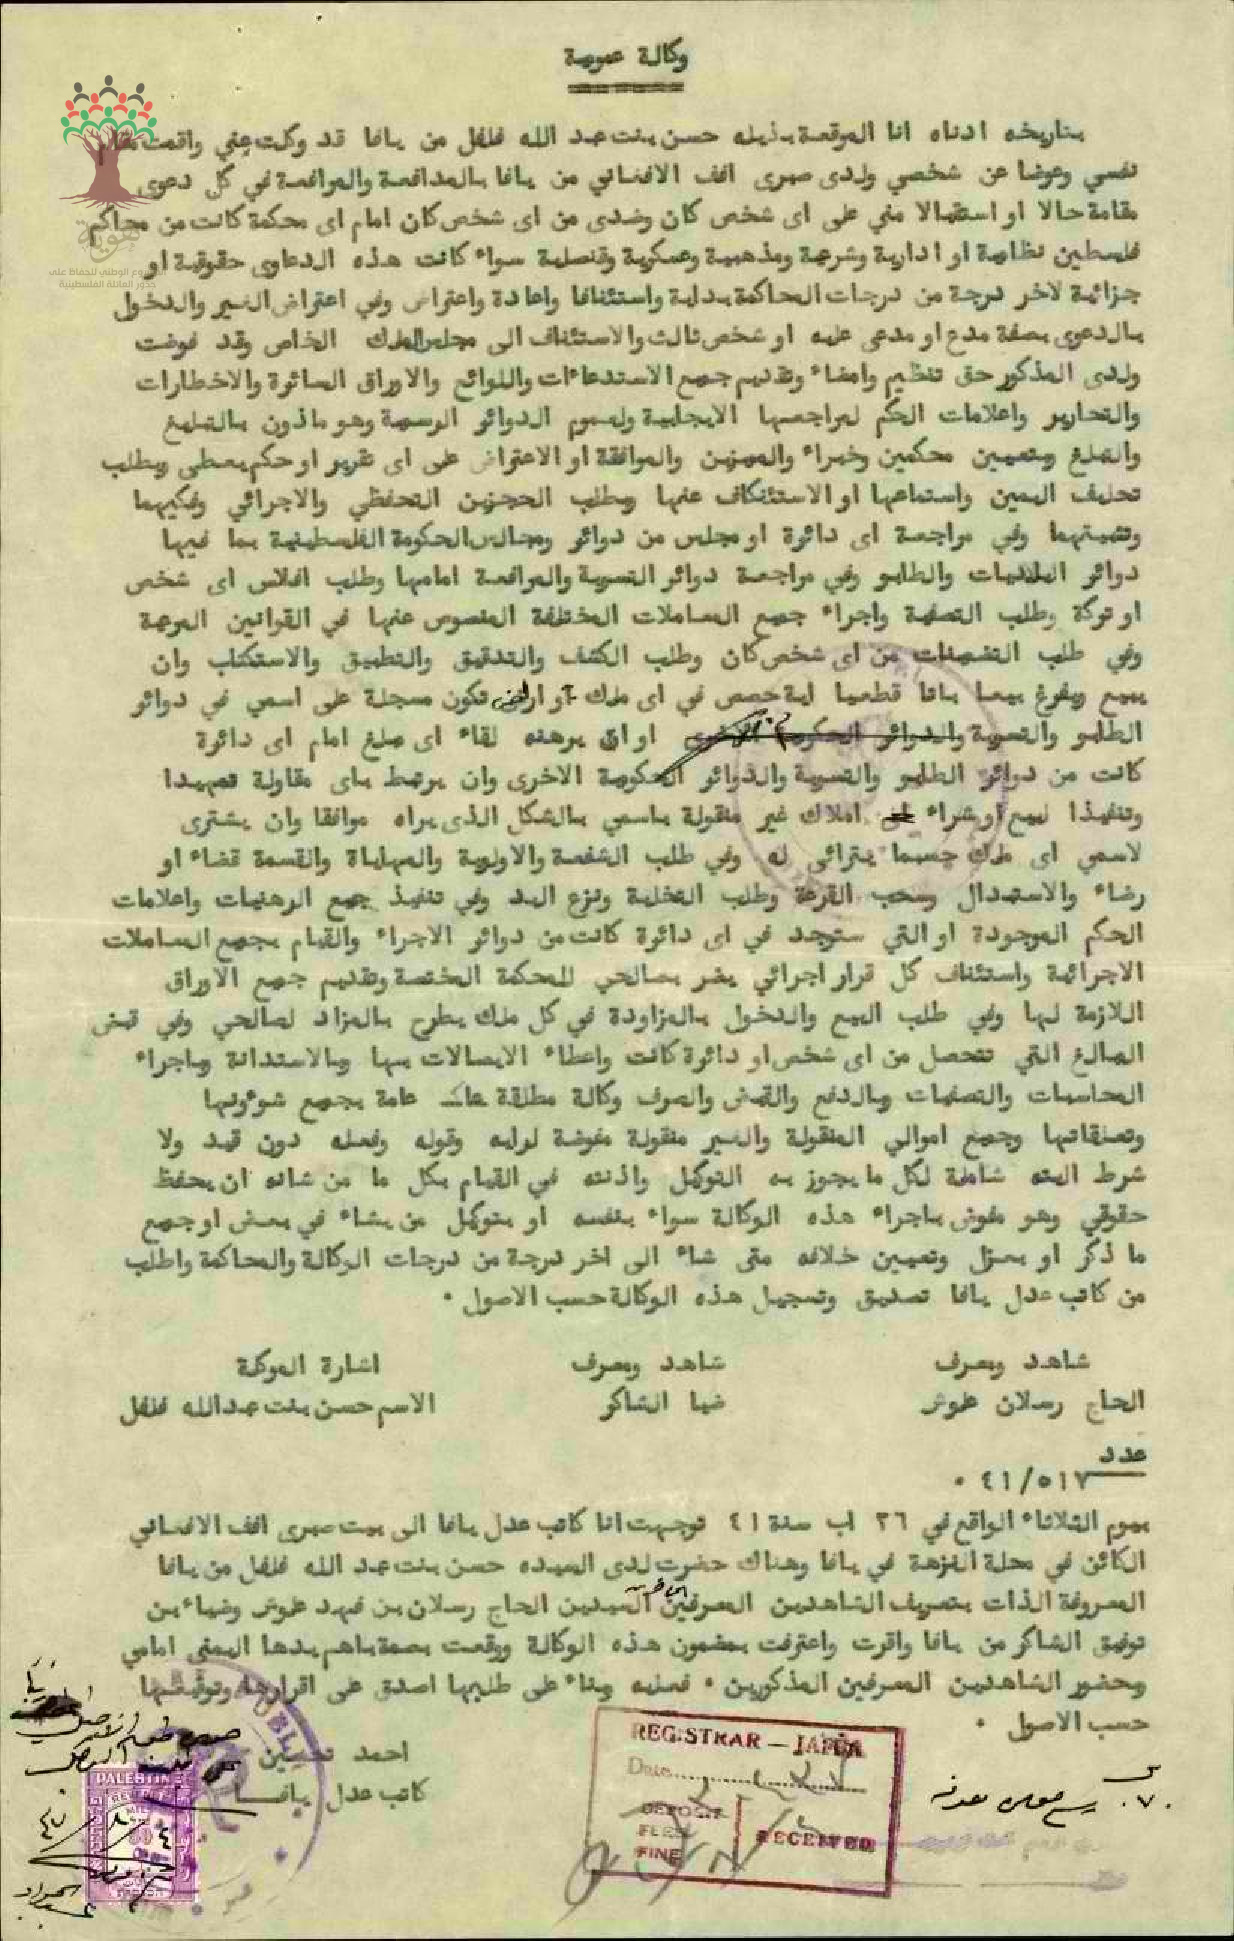 وكالة عمومية
بتاريخه ادناه انا الموقعة بذيله حسن بنت عبد الله فلفل من يافا قد وكلت عني واقمت مقام
نفسي وعوضا عن شخصي ولدى صبرى افف الافغاني من يافا بالمدافعة والمرافعة في كل دعوى
مقامة حالا او استقبالا مني على اى شخص كان وضدى من اى شخص كان امام اى محكمة كانت من محاكم
فلسطين نظامية او ادارية وشرعية ومذهبية وعسكرية وقنصلية سواء كانت هذه الدعاوى حقوقية او
جزائية لاخر درجة من درجات المحاكمة بداية واستئنافا واعادة واعتراض وفي اعتراض الغير والدخول
بالدعوى بصفة مدع او مدعى عليه او شخص ثالث والاستئناف الى مجلس الملك الخاص وقد فوضت
ولدى المذكور حق تنظيم وامضاء وتقديم جميع الاستدعاءات واللوائح والاوراق السائرة والاخطارات
والتحارير واعلامات الحكم لمراجعها الايجابية ولعموم الدوائر الرسمية وهو ماذون بالتبليغ
والتبلغ وبتعيين محكمين وخبراء والمميزين والموافقة او الاعتراض على اى تقرير او حكم يعطى وبطلب
تحليف اليمين واستماعها او الاستنكاف عنها وبطلب الحجزين التحفظي والاجرائي وفكيهما
وتثبيتهما وفي مراجعة اى دائرة او مجلس من دوائر ومجالس الحكومة الفلسطينية بما فيها
دوائر البلديات والطابو وفي مراجعة دوائر التسوية والمرافعة امامها وطلب افلاس اى شخص
او تركة وطلب التصفية واجراء جميع المعاملات المختلفة المنصوص عنها في القوانين المرعية
وفي طلب التضمينات من اى شخص كان وطلب الكشف والتدقيق والتطبيق والاستكتاب وان
يبيع ويفرغ بيعا باتا قطعيا اية حصص في اى ملك او اراضي تكون مسجلة على اسمي في دوائر
الطابو والتسوية والدوائر الحكومية الاخرى او ان يرهنه لقاء اى مبلغ امام اى دائرة
كانت من دوائر الطابو والتسوية والدوائر الحكومية الاخرى وان يرتبط باى مقاولة تمهيدا
وتنفيذا لبيع او شراء املاك غير منقولة باسمي بالشكل الذى يراه موافقا وان يشترى
لاسمي اى ملك حسبما يترائى له وفي طلب الشفعة والاولوية والمهاياة والقسمة قضاء او
رضاء والاستبدال وسحب القرعة وطلب التخلية ونزع اليد وفي تنفيذ جميع الرهنيات واعلامات
الحكم الموجودة او التي ستوجد في اى دائرة كانت من دوائر الاجراء والقيام بجميع المعاملات
الاجرائية واستئناف كل قرار اجرائي يضر بصالحي للمحكمة المختصة وتقديم جميع الاوراق
اللازمة لها وفي طلب البيع والدخول بالمزاودة في كل ملك يطرح بالمزاد لصالحي وفي قبض
المبالغ التي تتحصل من اى شخص او دائرة كانت واعطاء الايصالات بها وبالاستدانة وباجراء
المحاسبات والتصفيات وبالدفع والقبض والصرف وكالة مطلقة عامة بجميع شوءونها
وتعلقاتها وجميع اموالي المنقولة والغير منقولة مفوضة لرايه وقوله وفعله دون قيد ولا
شرط البته شاملة لكل ما يجوز به التوكيل واذنته في القيام بكل ما من شانه ان يحفظ
حقوقي وهو مفوض باجراء هذه الوكالة سواء بنفسه او بتوكيل من يشاء في بعض او جميع
ما ذكر او بعزل وتعيين خلافه متى شاء الى اخر درجة من درجات الوكالة والمحاكمة واطلب
من كاتب عدل يافا تصديق وتسجيل هذه الوكالة حسب الاصول .
شاهد ومعرف شاهد ومعرف اشارة الموكلة
الحاج رسلان علوش ضيا الشاكر الاسم حسن بنت عبدالله فلفل
عدد
٤١/٥١٧ .
بيوم الثلاثاء الواقع في ٢٦ اب سنة ٤١ توجهت انا كاتب عدل يافا الى بيت صبرى افف الافغاني
الكائن في محلة النزهة في يافا وهناك حضرت لدى السيده حسن بنت عبد الله فلفل من يافا
المعروفة الذات بتعريف الشاهدين المعرفين السيدين الحاج رسلان بن فهد علوش وضياء بن
توفيق الشاكر من يافا واقرت واعترفت بمضمون هذه الوكالة ووقعت بصمة باهم يدها اليمنى امامي
وحضور الشاهدين المعرفين المذكورين . فعليه وبناء على طلبها اصدق على اقرارها وتوقيعها
حسب الاصول .
احمد تحسين
كاتب عدل يافا
REGISTRAR — JAFFA
Date
DEPOSIT
FEES
FINE
RECEIVED
PALESTINE
هوية
المشروع الوطني للحفاظ على
جذور العائلة الفلسطينية